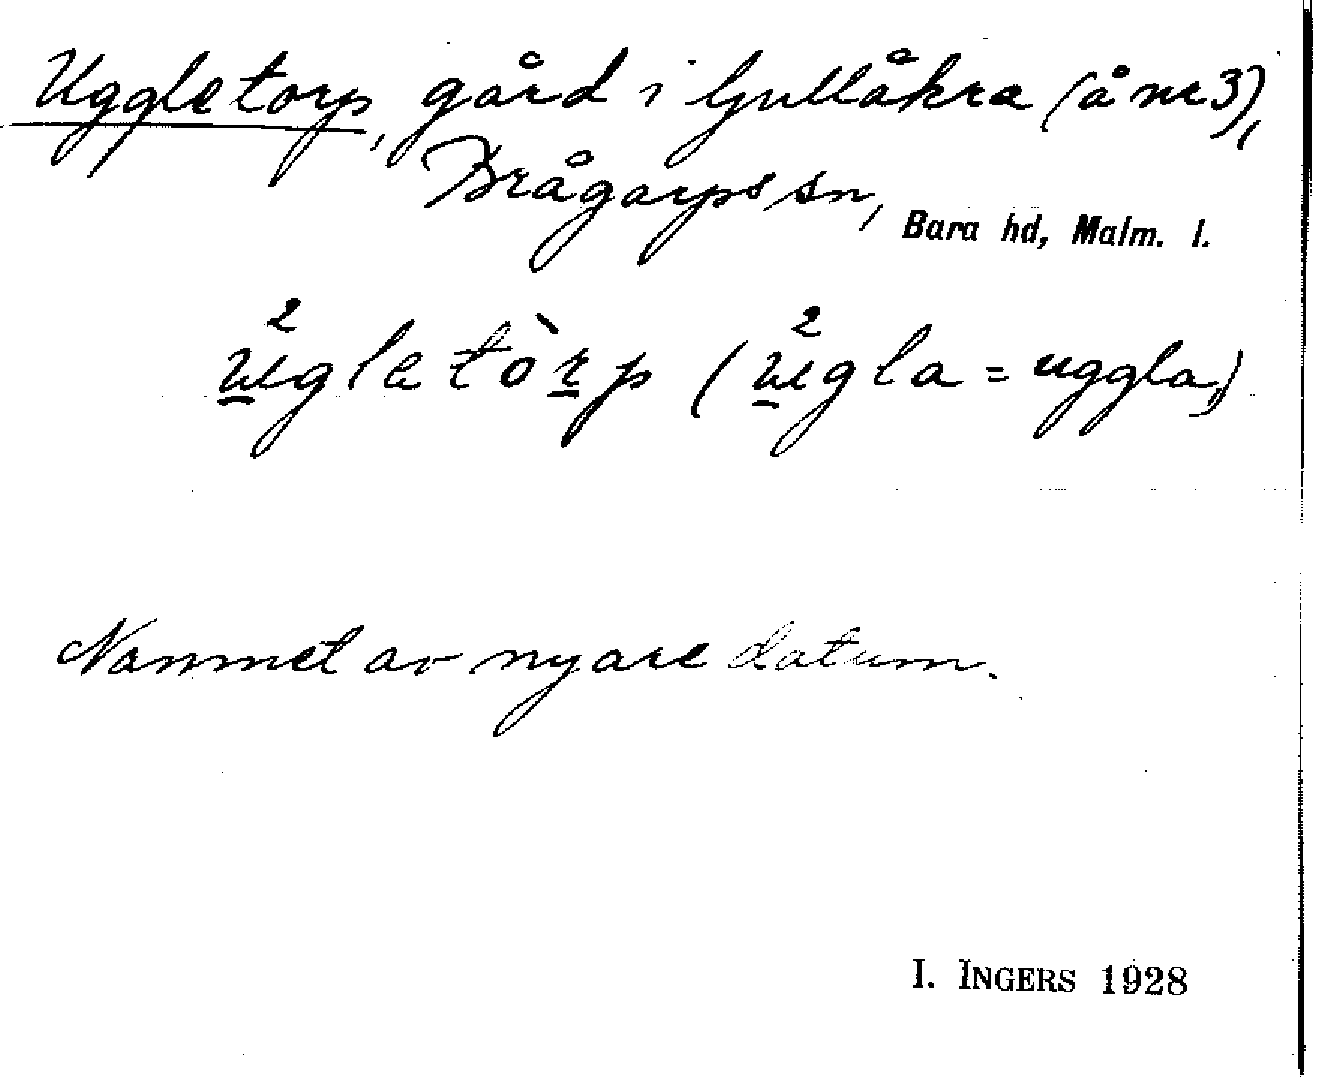 Uggletorp, gård i Ljullåkra (å nr 3),
Brågarps sn, Bara hd, Malm. l.
ugletòrp (ugla = uggla)
Namnet av nyare datum.
I. INGERS 1928